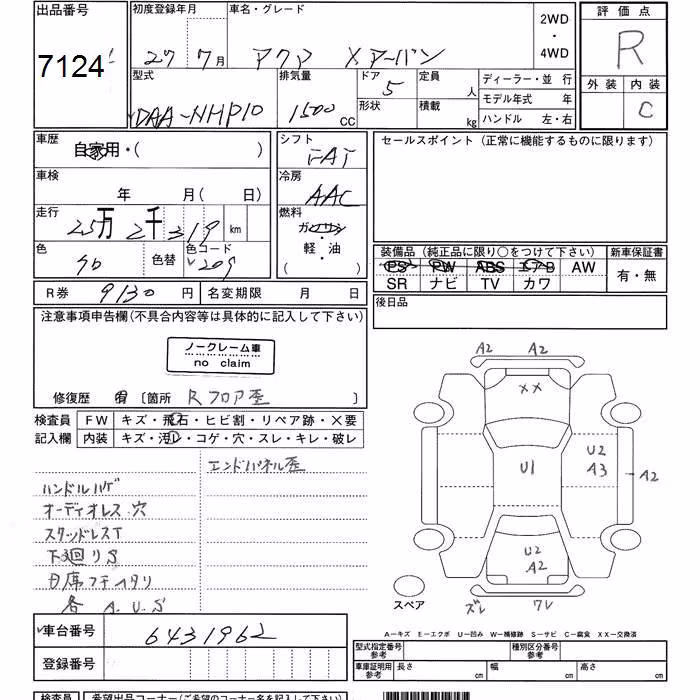 出品番号 初度登録年月 車名・グレード 2WD・4WD 評価点
7124 27年 7月 アクア Xアーバン R
型式 排気量 ドア 定員 ディーラー・並行 外装 内装
DAA-NHP10 1500 CC 5 人 モデル年式 年 C
形状 積載 kg ハンドル 左・右
車歴 シフト セールスポイント(正常に機能するものに限ります)
自家用・( ) FAT
車検 冷房
年 月(日) AAC
走行 燃料
25万2千319 km ガソリン・軽・油
色 色替 色コード ( ) 装備品(純正品に限り○をつけて下さい) 新車保証書
209 PS PW ABS エアB AW 有・無
SR ナビ TV カワ
R券 9130円 名変期限 月 日 後日品
注意事項申告欄(不具合内容等は具体的に記入して下さい)
ノークレーム車
no claim
修復歴 有 [箇所 Rフロア歪 ]
検査員 FW キズ・飛石・ヒビ割・リペア跡・×要
記入欄 内装 キズ・汚レ・コゲ・穴・スレ・キレ・破レ
エンドパネル歪
ハンドルハゲ
オーディオレス 穴
スタッドレスT
下廻りS
各 A.U.S
A2 A2
XX
U1
U2
A3
A2
U2
A2
ズレ ワレ
スペア
A-キズ E-エクボ U-凹み W-補修跡 S-サビ C-腐食 XX-交換済
車台番号 6431962
登録番号
型式指定番号 参考 種別区分番号 参考
車庫証明用 参考 長さ cm 幅 cm 高さ cm
検査員 希望出品コーナー(ご希望のコーナー名を記入して下さい)